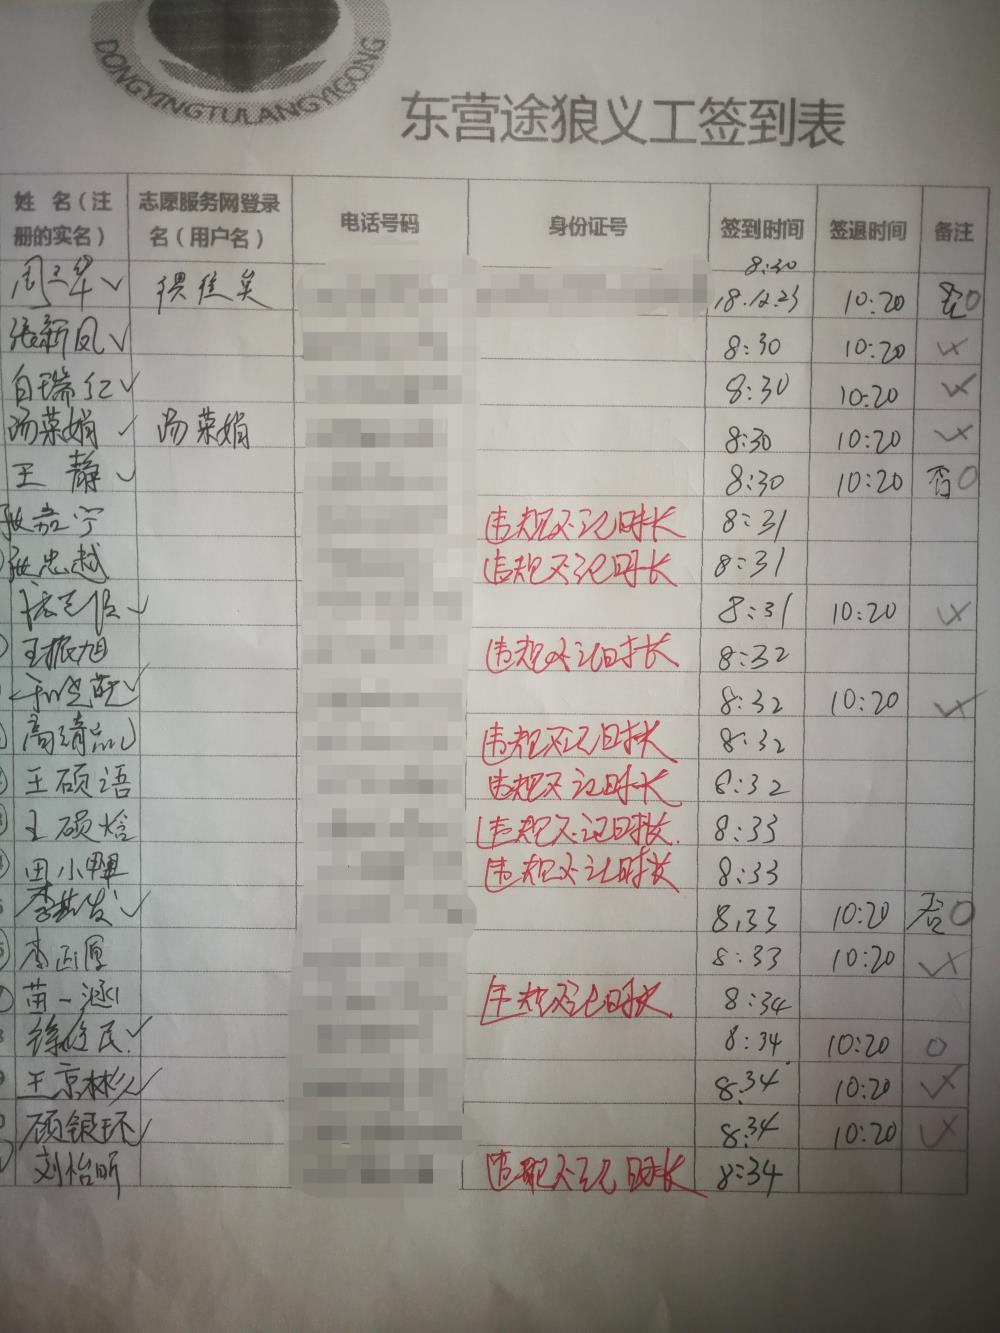 DONGYINGTULANGYIGONG
东营途狼义工签到表
姓 名（注册的实名） 志愿服务网登录名（用户名） 电话号码 身份证号 签到时间 签退时间 备注
8:30
18.12.23 10:20 O
张新凤✓ 8:30 10:20 ✓
白瑞红✓ 8:30 10:20 ✓
汤荣娟✓ 汤荣娟 8:30 10:20 ✓
王静✓ 8:30 10:20 否O
张嘉宁 违规不记时长 8:31
张忠越 违规不记时长 8:31
✓ 8:31 10:20 ✓
王振旭 违规不记时长 8:32
✓ 8:32 10:20 ✓
违规不记时长 8:32
王硕语 违规不记时长 8:32
王硕 违规不记时长 8:33
田小 违规不记时长 8:33
✓ 8:33 10:20 否O
李 8:33 10:20 ✓
苗一涵 违规不记时长 8:34
徐 民✓ 8:34 10:20 O
王京彬✓ 8:34 10:20 ✓
顾银环✓ 8:34 10:20 ✓
刘怡昕 违规不记时长 8:34